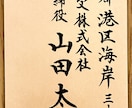 港区海岸三
株式会社
締役 山田太